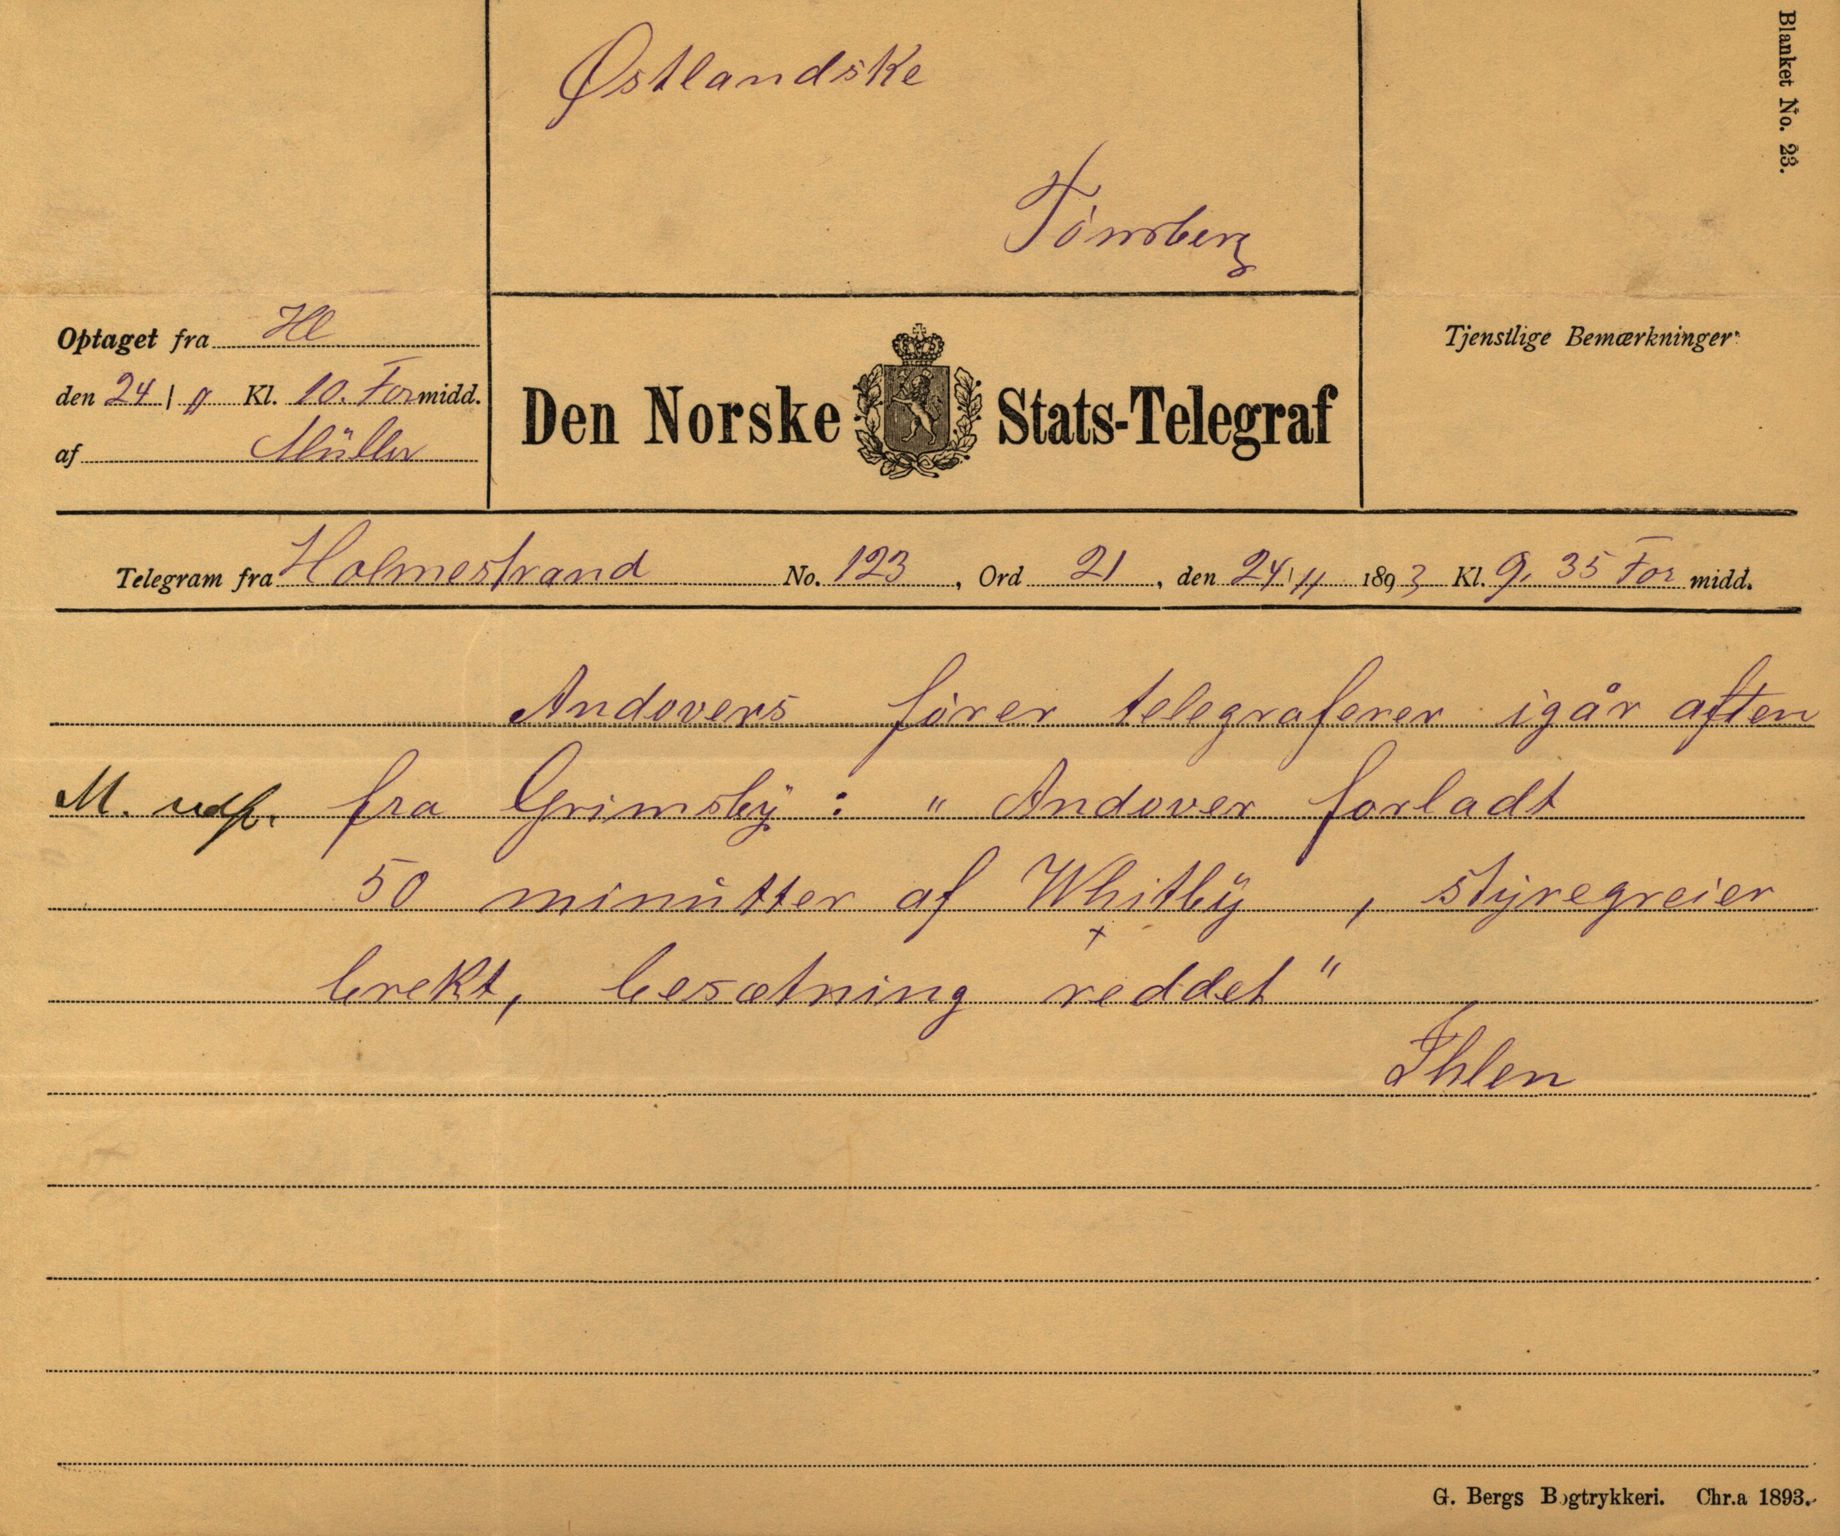 Blanket No. 23.
Østlandske
Tönsberg
Optaget fra Hl
den 24 / 11 Kl. 10. Formidd.
af Müller
Den Norske Stats-Telegraf
Tjenstlige Bemærkninger
Telegram fra Holmestrand No. 123, Ord 21, den 24/11 1893 Kl. 9. 35 For midd.
Andovers förer telegraferer igår aften
M. udf. fra Grimsbÿ : " Andover forladt
50 minutter af Whitbÿ , stÿregreier
brekt, besætning reddet"
Ihlen
G. Bergs Bogtrykkeri. Chr.a 1893.